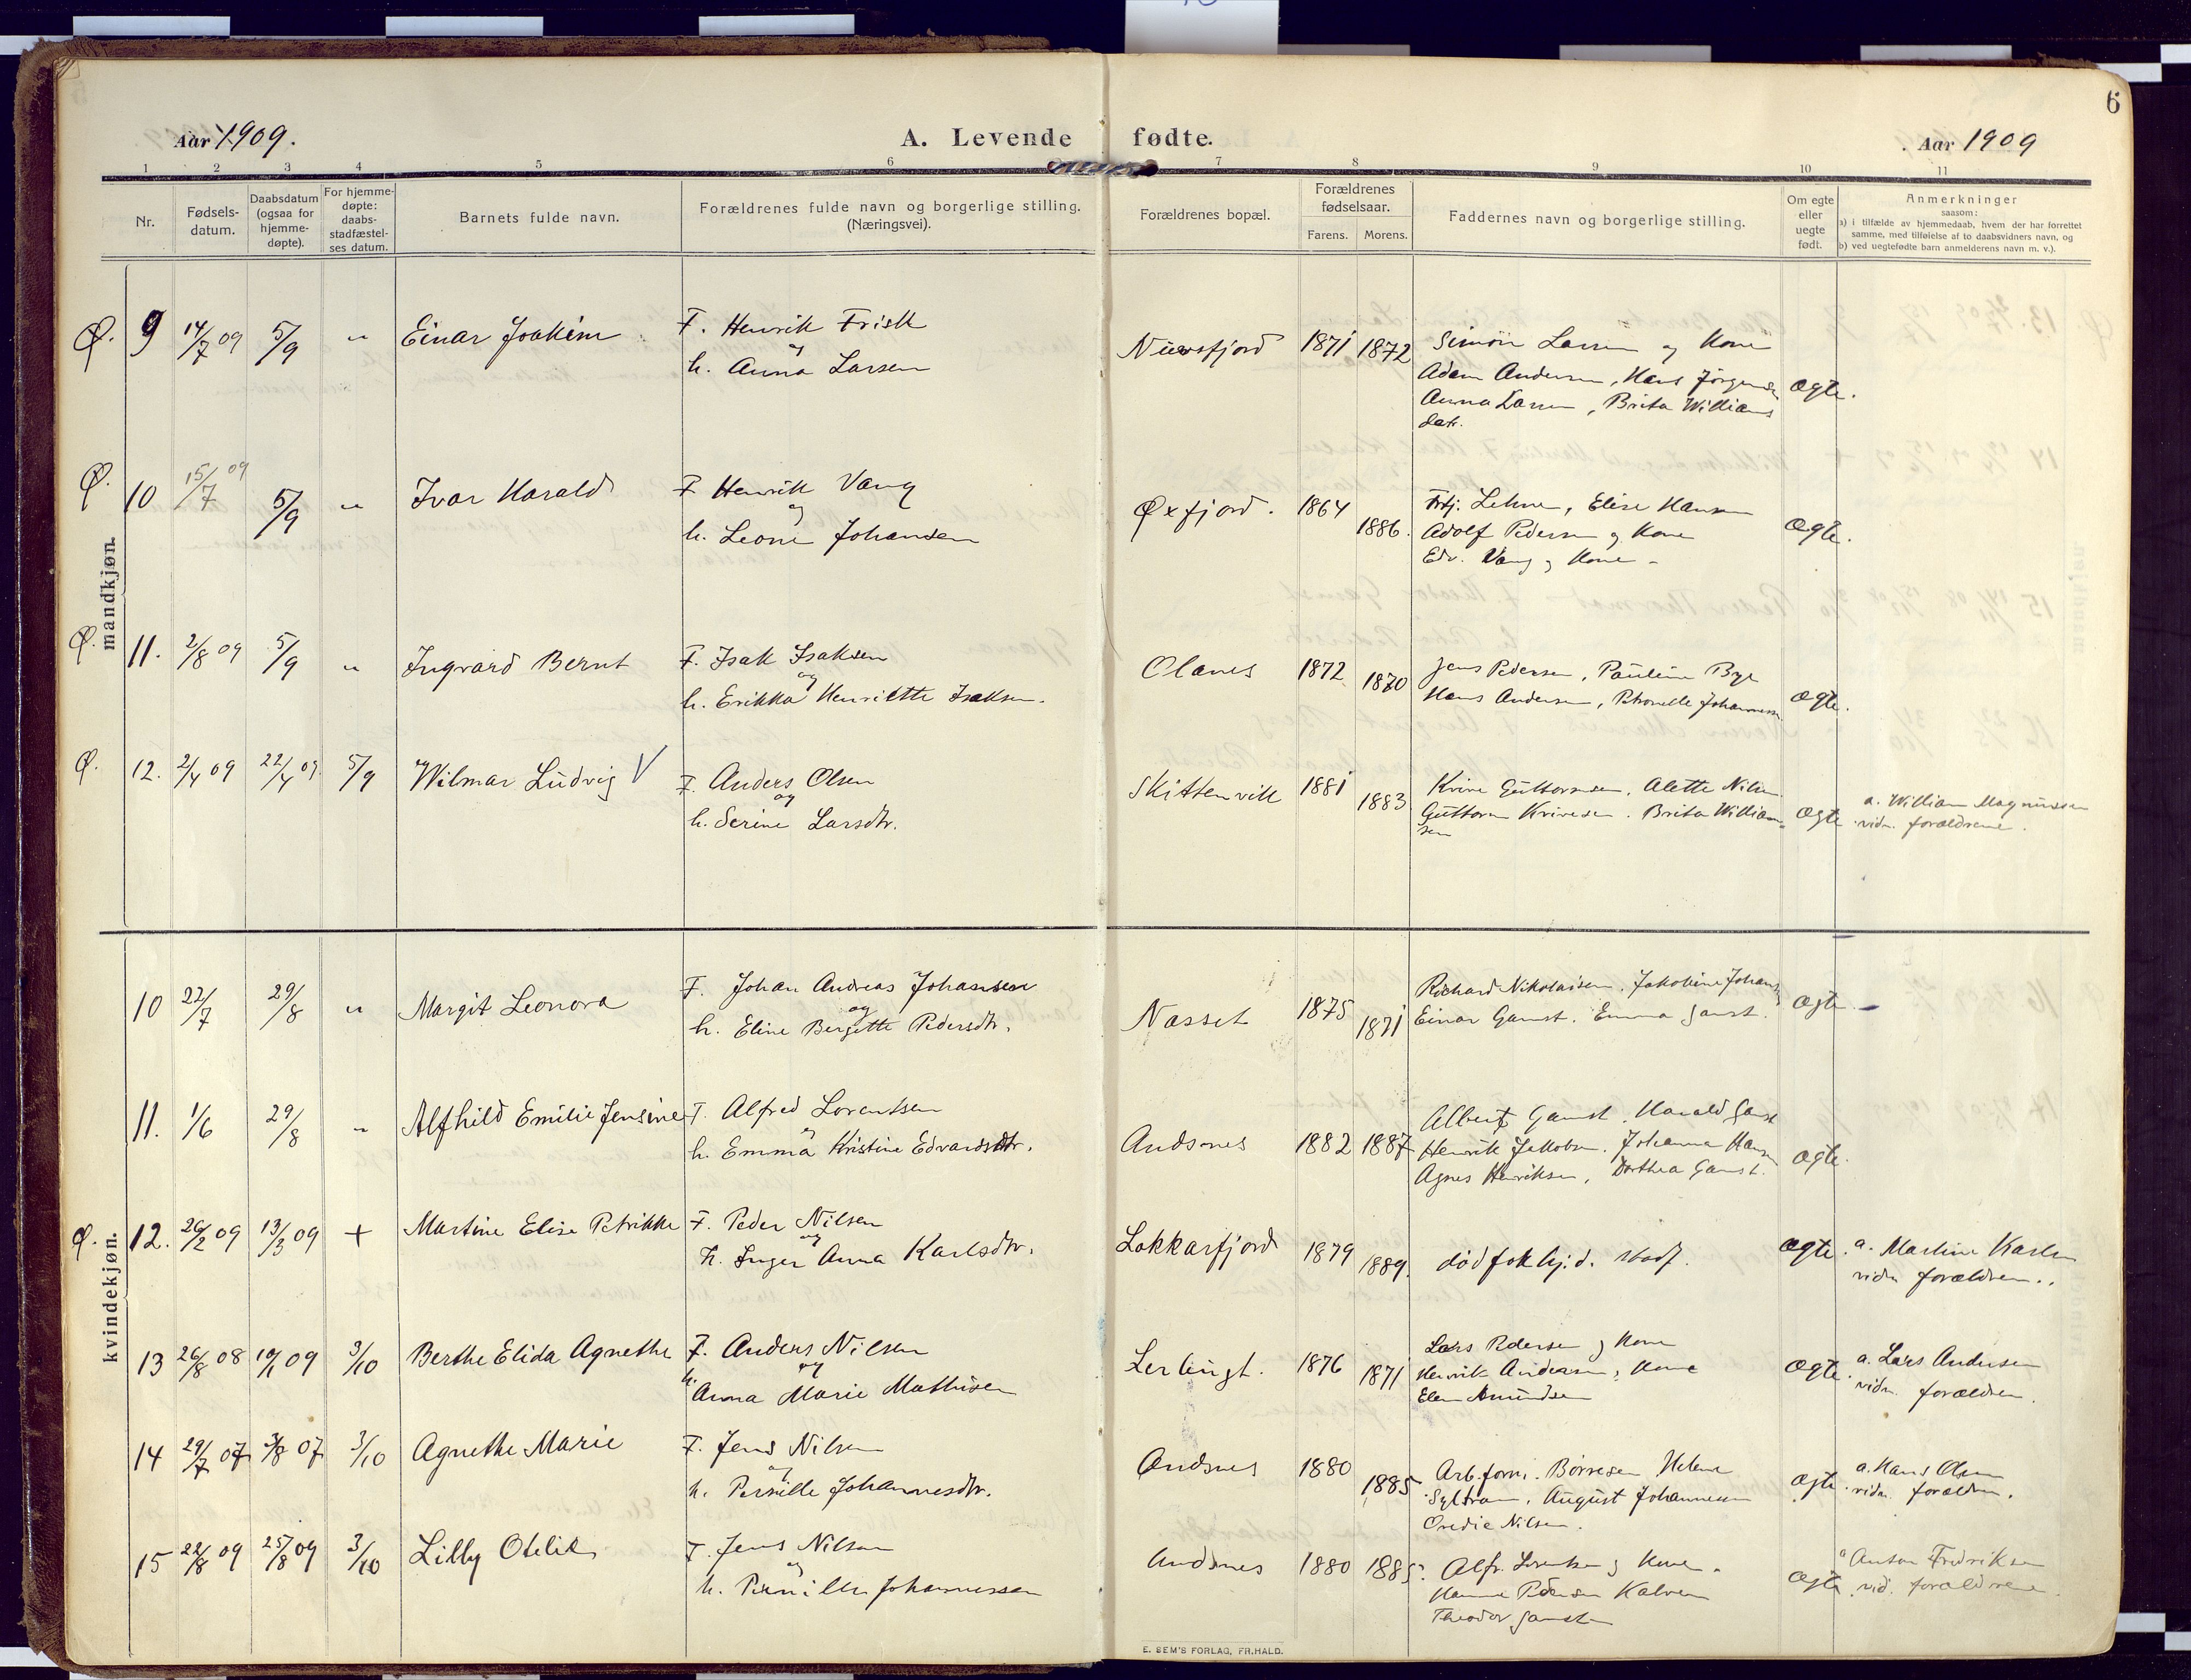 6
Aar 1909.
A. Levende fødte.
Aar 1909
1 2 3 4 5 6 7 8 9 10 11
Nr.
Fødsels-
datum.
Daabsdatum
(ogsaa for
hjemme-
døpte).
For hjemme-
døpte:
daabs-
stadfæstel-
ses datum.
Barnets fulde navn.
Forældrenes fulde navn og borgerlige stilling.
(Næringsvei).
Forældrenes bopæl.
Forældrenes
fødselsaar.
Farens. Morens.
Faddernes navn og borgerlige stilling.
Om egte
eller
uegte
født.
Anmerkninger
saasom:
a) i tilfælde av hjemmedaab, hvem der har forrettet
samme, med tilføielse af to daabsvidners navn, og
b) ved uegtefødte barn anmelderens navn m. v.).
mandkjøn.
Ø. 9 14/7 09 5/9 " Einar Joakim
F. Henrik Frisk
og
h. Anna Larsen
1871 1872
Simon Larsen og Kone
Adam Andersen, Hans Jørgensen
Anna Larsen, Brita Williams
datr.
ægte.
Ø. 10 15/7 09 5/9 " Ivar Harald
F Henrik Vang
og
h. Leone Johansen
Øxfjord. 1864 1886.
Lehne, Elise Hansen
Adolf Pedersen og Kone
Edv. Vang og Kone
ægte.
Ø. 11. 2/8 09 5/9 " Ingvard Bernt
F. Isak Isaksen
og
h. Erikka Henriette Isaksen.
Olanes 1872 1870
Jens Pedersen, Pauline
Hans Andersen, Petronelle Johannessen
ægte.
Ø. 12. 2/4 09 22/4 09 5/9 Wilmar Ludvig V
F. Anders Olsen
og
h. Serine Larsdtr.
Skittenvik 1881 1883
Krine Guttormsen, Alette Nilsen
Guttorm Krinesen. Brita William-
sen
ægte
a. William Magnussen
vidn. forældrene.
kvindekjøn.
10 22/7 29/8 " Margit Leonora
F. Johan Andreas Johansen
og
h. Eline Bergitte Pedersdtr.
Næsset 1875 1871
Richard Nikolaisen. Jakobine Johansen
Einar Gamst. Emma Gamst.
ægte.
11. 1/6 29/8 " Alfhild Emilie Jensine
F. Alfred Lorentsen
og
h. Emma Kristine Edvardsdtr.
Andsnes 1882 1887
Albert Gamst. Harald Gamst
Henrik Jakobsen. Johanna Hansen
Agnes Henriksen, Dorthea Gamst.
ægte.
Ø. 12. 26/2 09 13/3 09 + Martine Elise Petrikke
F. Peder Nilsen
og
h. Inger Anna Karlsdtr.
Lokkarfjord 1879 1889.
død før hj.d. stadf.
ægte.
a. Martin Karlsen
vidn. forældren.
13 26/8 08 10/1 09 3/10 Berthe Elida Agnethe
F. Anders Nilsen
og
h. Anna Marie Mathisen
Lerbugt. 1876 1871
Lars Pedersen og Kone
Henrik Andersen, Kone
Elen Amundsen
ægte.
a. Lars Andersen
vidn. forældren.
14 29/7 07 3/8 07 3/10 Agnethe Marie
F. Jens Nilsen
og
h. Pernille Johannesdtr.
Andsnes 1880 1885
Arb.form. Børresen Helene
August Johannessen
Oredie Nilsen.
ægte.
a. Hans Olsen
vidn. forældren.
15 22/8 09 25/8 09 3/10 Lilly Otelie
F. Jens Nilsen
og
h. Pernille Johannessen
Andsnes 1880 1885.
Alfr. Lorentsen og Kone.
Hanne Pedersen Kalven
Theodor Gamst
ægte
a Anton Fredriksen
vid. forældrene.
E. SEM'S FORLAG, FR.HALD.